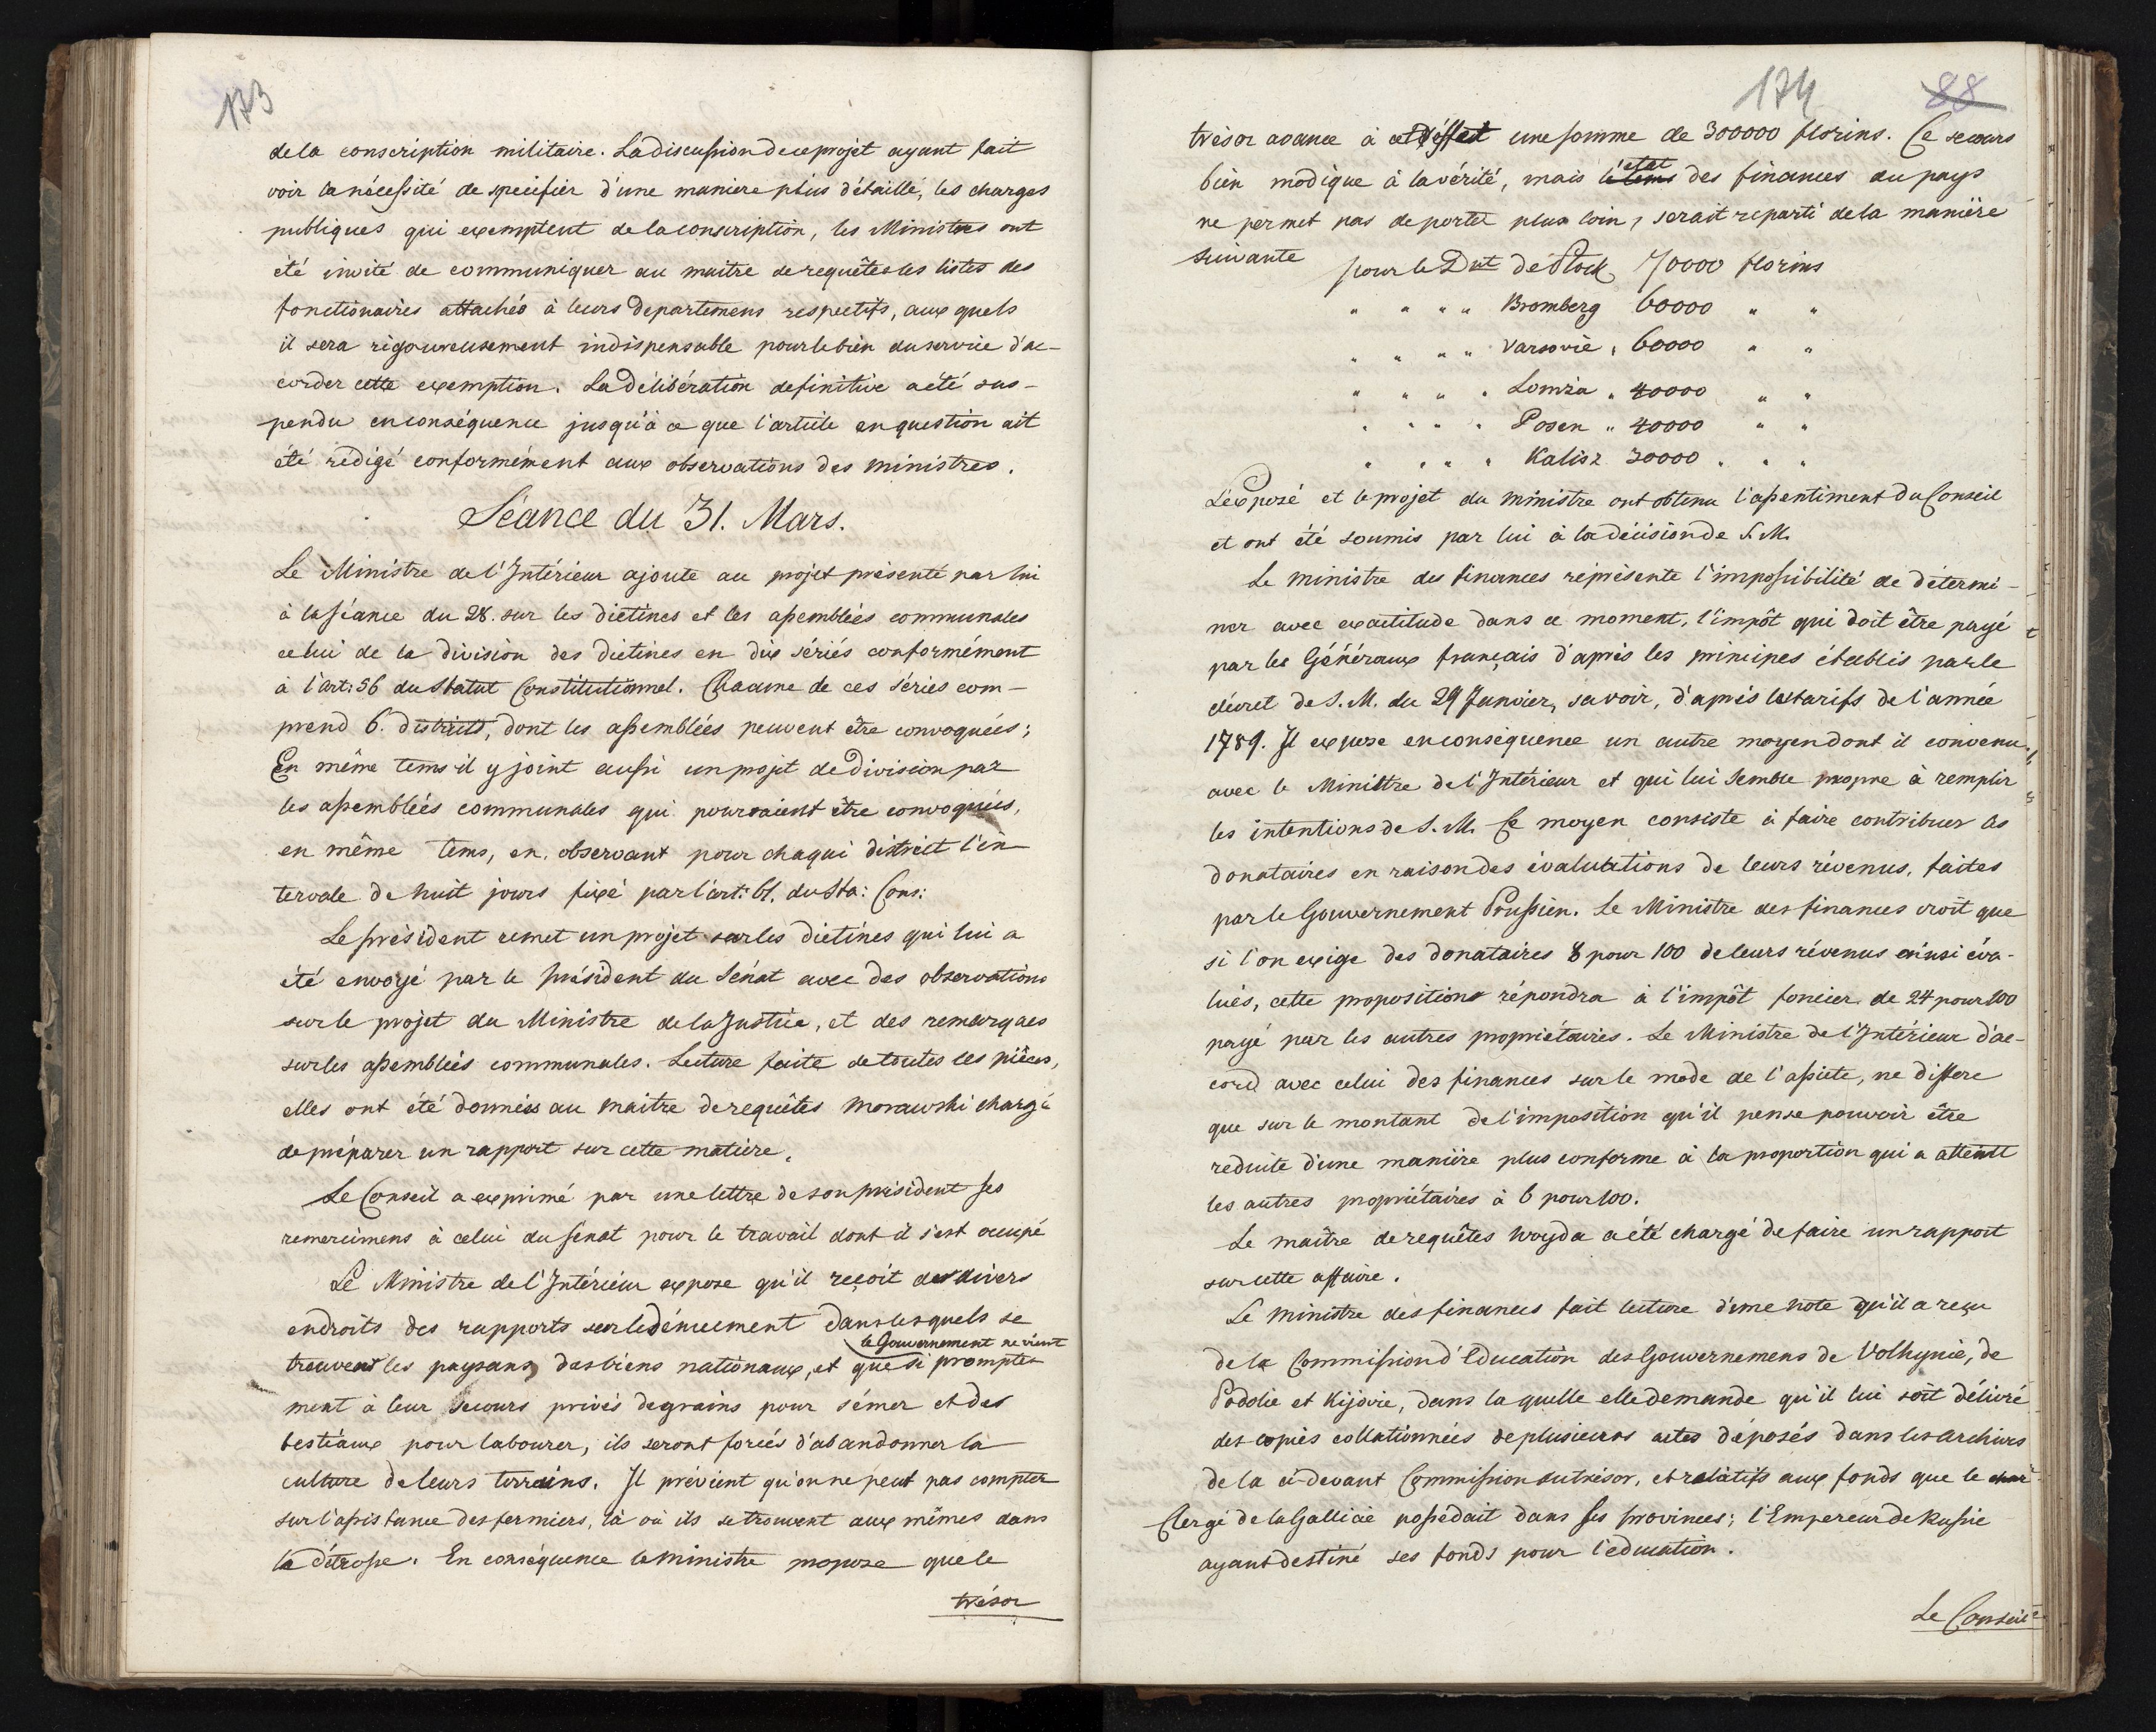 173
de la conscription militaire. La discussion de ce projet ayant fait
voir la nécessité de spécifier d'une maniere plus détaillé, les charges
publiques qui exemptent de la conscription, les Ministres ont
été invité de communiquer au maitre de requêtes les listes des
fonctionaires attachés à leurs departemens respectifs, aux quels
il sera rigoureusement indispensable pour le bien du service d'ac-
corder cette exemption. La délibération definitive a été sus-
pendu en conséquence jusqu'à ce que l'article en question ait
été rédigé conformément aux observations des ministres.
Séance du 31. Mars.
Le Ministre de l'Intérieur ajoute au projet présenté par lui
à la séance du 28. sur les diètines et les assemblées communales
celui de la division des diètines en dix séries conformément
à l'art: 56 du Statut Constitutionnel. Chacune de ces séries com-
prend 6. districts, dont les assemblées peuvent être convoquées;
En même tems il y joint aussi un projet de division par
les assemblées communales qui pourraient être convoquées,
en même tems, en observant pour chaqui district l'in-
tervale de huit jours fixé par l'art: 61. du Sta: Cons:
Le président remet un projet sur les diètines qui lui a
été envoyé par le président du Sénat avec des observations
sur le projet du Ministre de la Justice, et des remarques
sur les assemblées communales. Lecture faite de toutes les pièces,
elles ont été données au maitre de requêtes Morawski chargé
de préparer un rapport sur cette matière.
Le Conseil a exprimé par une lettre de son président ses
remercimens à celui du sénat pour le travail dont il s'est occupé
Le Ministre de l'Intérieur expose qu'il reçoit des divers
endroits des rapports sur le dénuement dans lesquels se
trouvent les paysans des biens nationaux, et que si le Gouvernement ne vient prompte-
ment à leur secours privés de grains pour sémer et des
bestiaux pour labourer, ils seront forcés d'abandonner la
culture de leurs terrains. Il prévient qu'on ne peut pas compter
sur l'assistance des fermiers, là où ils se trouvent eux mêmes dans
la détresse. En conséquence le ministre propose que le
trésor
174 88
trésor avance à cet effet une somme de 300000 florins. Ce secours
bien modique à la vérité, mais l'état des finances du pays
ne permet pas de porter plus loin, serait reparti de la manière
suivante
pour le Dnt de Plock 70000 florins
" " " " Bromberg 60000 " "
" " " " Varsovie " 60000 " "
" " " " Lomza " 40000 " "
" " " " Posen " 40000 " "
" " " " Kalisz 30000 " " "
L'exposé et le projet du ministre ont obtenu l'assentiment du Conseil
et ont été soumis par lui à la décision de S. M.
Le ministre des finances réprésente l'impossibilité de détermi-
ner avec exactitude dans ce moment, l'impôt qui doit être payé
par les Généraux français d'après les principes établis par le
décret de S. M. du 29 Janvier, savoir, d'après les tarifs de l'année
1789. Il expose en conséquence un autre moyen dont il convenu
avec le Ministre de l'Intérieur et qui lui semble propre à remplir
les intentions de S. M. Ce moyen consiste à faire contribuer les
donataires en raison des évaluations de leurs révenus, faites
par le Gouvernement Prussien. Le Ministre des finances croit que
si l'on exige des donataires 8 pour 100 de leurs révenus ainsi éva-
lués, cette proposition répondra à l'impôt foncier de 24 pour 100
payé par les autres propriétaires. Le Ministre de l'Intérieur d'ac-
cord avec celui des finances sur le mode de l'assiete, ne differe
que sur le montant de l'imposition qu'il pense pouvoir être
reduite d'une manière plus conforme à la proportion qui a atteint
les autres propriétaires à 6 pour 100.
Le maître de requêtes Woyda a été chargé de faire un rapport
sur cette affaire.
Le ministre des finances fait lecture d'une note qu'il a reçu
de la Commission d'Education des Gouvernemens de Volhynie, de
Podolie et Kijovie, dans la quelle elle demande qu'il lui soit délivré
des copies collationnées de plusieurs actes déposés dans les archives
de la ci-devant Commission du trésor, et relatifs aux fonds que le
Clergé de la Gallicie possédait dans ses provinces; l'Empereur de Russie
ayant destiné ses fonds pour l'education.
Le Conseil